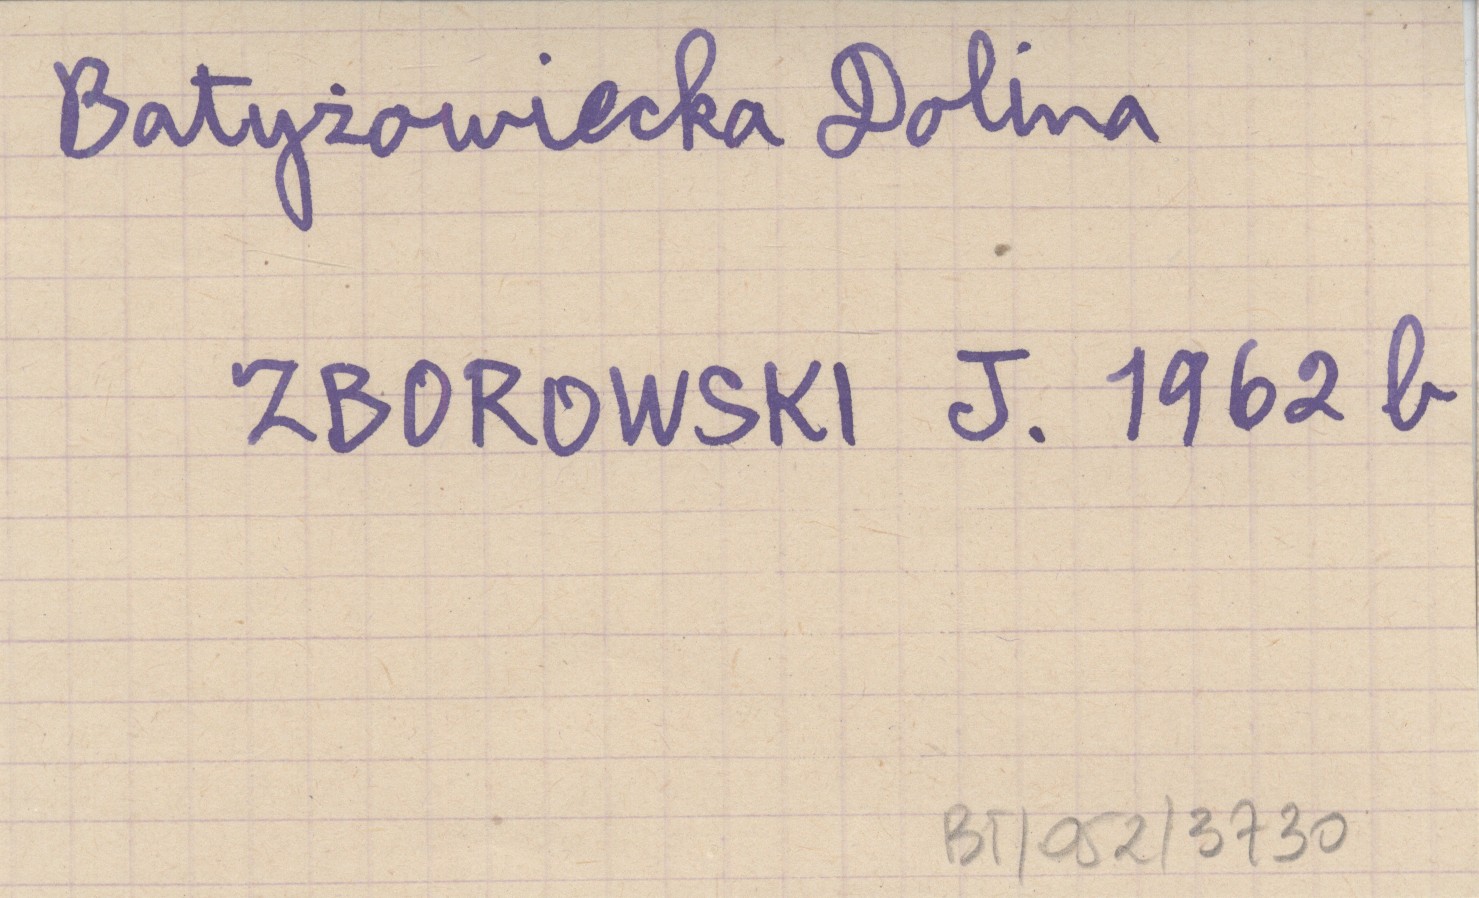 Batyżowiecka Dolina
ZBOROWSKI J. 1962 b
BT/052/3730